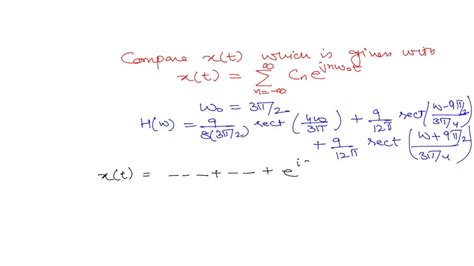 Compare x(t) which is given with
x(t) = ∞∑n=-∞ Cn e^jnω₀t
ω₀ = 3π/2
H(ω) = 9/8(3π/2) rect (4ω/3π) + 9/12π rect (ω-9π/2 / 3π/4)
+ 9/12π rect (ω+9π/2 / 3π/4)
x(t) = --- + -- + e^i-